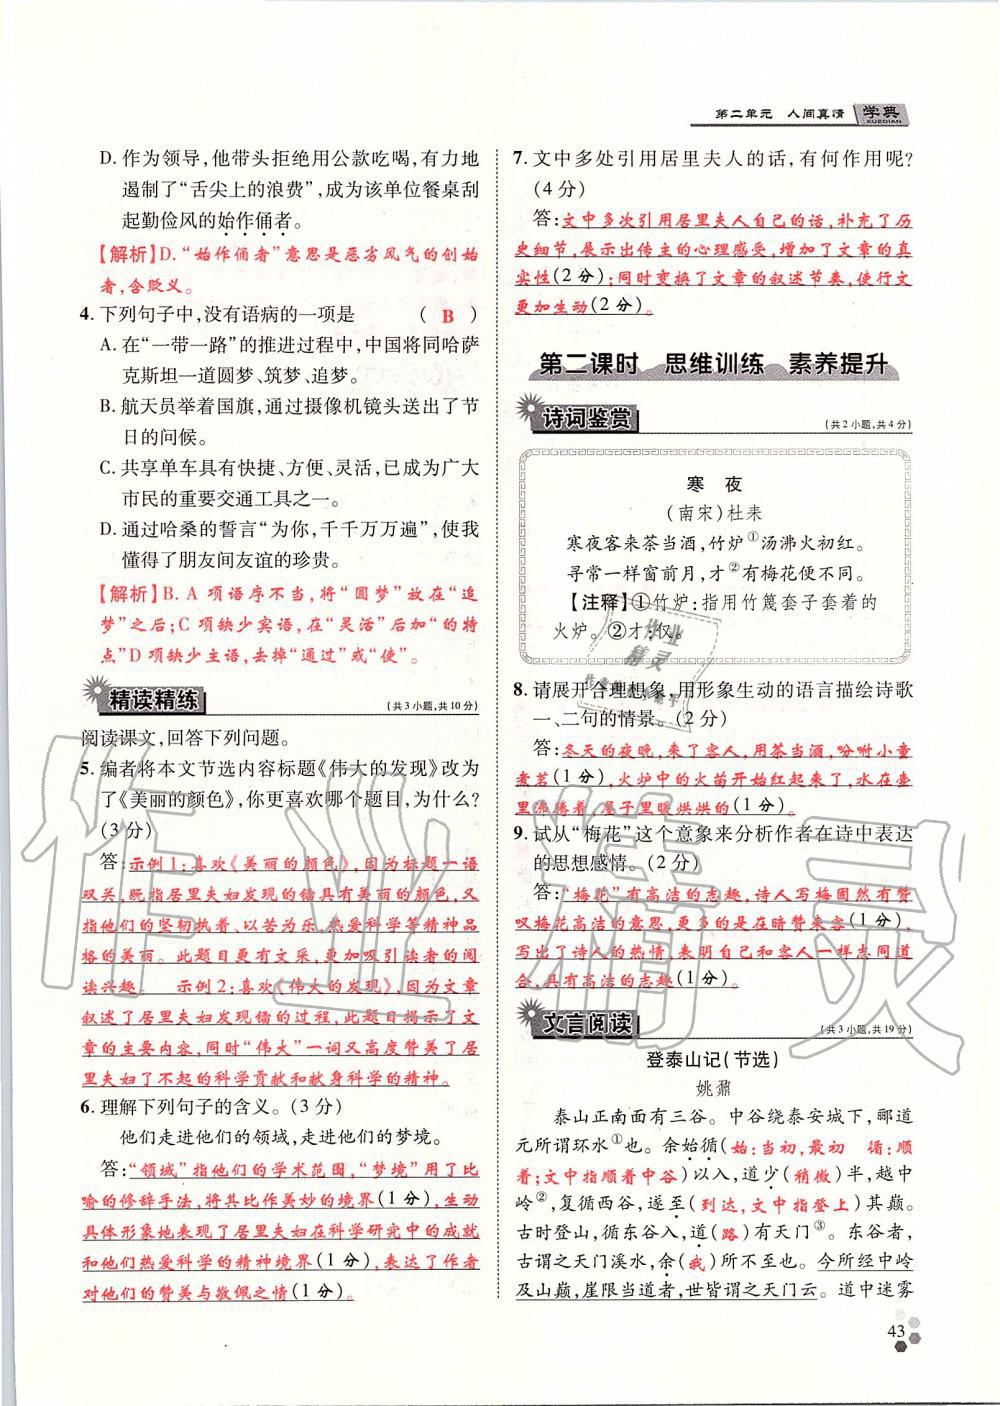 第二单元　人间真情　学典
XUEDIAN
D. 作为领导，他带头拒绝用公款吃喝，有力地
遏制了“舌尖上的浪费”，成为该单位餐桌刮
起勤俭风的始作俑者。
【解析】D.“始作俑者”意思是恶劣风气的创始
者，含贬义。
4. 下列句子中，没有语病的一项是　（ B ）
A. 在“一带一路”的推进过程中，中国将同哈萨
克斯坦一道圆梦、筑梦、追梦。
B. 航天员举着国旗，通过摄像机镜头送出了节
日的问候。
C. 共享单车具有快捷、方便、灵活，已成为广大
市民的重要交通工具之一。
D. 通过哈桑的誓言“为你，千千万万遍”，使我
懂得了朋友间友谊的珍贵。
【解析】B. A 项语序不当，将“圆梦”放在“追
梦”之后；C 项缺少宾语，在“灵活”后加“的特
点”D 项缺少主语，去掉“通过”或“使”。
精读精练　（共3小题，共10分）
阅读课文，回答下列问题。
5. 编者将本文节选内容标题《伟大的发现》改为
了《美丽的颜色》，你更喜欢哪个题目，为什么？
（3分）
答：示例1：喜欢《美丽的颜色》，因为标题一语
双关，既指居里夫妇发现的镭具有美丽的颜色，又
指他们的坚韧执着、以苦为乐，热爱科学等精神品
格的美丽。此题目更有文采，更加吸引读者的阅
读兴趣。　示例2：喜欢《伟大的发现》，因为文章
叙述了居里夫妇发现镭的过程，此题目揭示了文
章的主要内容，同时“伟大”一词又高度赞美了居
里夫妇了不起的科学贡献和献身科学的精神。
6. 理解下列句子的含义。（3分）
他们走进他们的领域，走进他们的梦境。
答：“领域”指他们的学术范围，“梦境”用了比
喻的修辞手法，将其比作美妙的境界（1分），生动
具体形象地表现了居里夫妇在科学研究中的成就
和他们热爱科学的精神境界（1分），表达了作者
对他们的赞美与敬佩之情（1分）。
7. 文中多处引用居里夫人的话，有何作用呢？
（4分）
答：文中多次引用居里夫人自己的话，补充了历
史细节，展示出传主的心理感受，增加了文章的真
实性（2分）；同时变换了文章的叙述节奏，使行文
更加生动（2分）。
第二课时　思维训练　素养提升
诗词鉴赏　（共2小题，共4分）
寒　夜
（南宋）杜耒
寒夜客来茶当酒，竹炉①汤沸火初红。
寻常一样窗前月，才②有梅花便不同。
【注释】①竹炉：指用竹篾套子套着的
火炉。②才：仅。
8. 请展开合理想象，用形象生动的语言描绘诗歌
一、二句的情景。（2分）
答：冬天的夜晚，来了客人，用茶当酒，吩咐小童
煮茗（1分），火炉中的火苗开始红起来了，水在壶
里沸腾着，屋子里暖烘烘的（1分）。
9. 试从“梅花”这个意象来分析作者在诗中表达
的思想感情。（2分）
答：“梅花”有高洁的志趣，诗人写梅固然有赞
叹梅花高洁的意思，更多的是在暗赞来客（1分），
写出了诗人的热情，表明自己和客人一样志同道
合，具有高洁的志趣（1分）。
文言阅读　（共3小题，共19分）
登泰山记（节选）
姚鼐
泰山正南面有三谷。中谷绕泰安城下，郦道
元所谓环水①也。余始循（始：当初，最初　循：顺
着；文中指顺着中谷）以入，道少（稍微）半，越中
岭②，复循西谷，遂至（到达，文中指登上）其巅。
古时登山，循东谷入，道（路）有天门③。东谷者，
古谓之天门溪水，余（我）所不至也。今所经中岭
及山巅，崖限当道者，世皆谓之天门云。道中迷雾
43
作业精灵